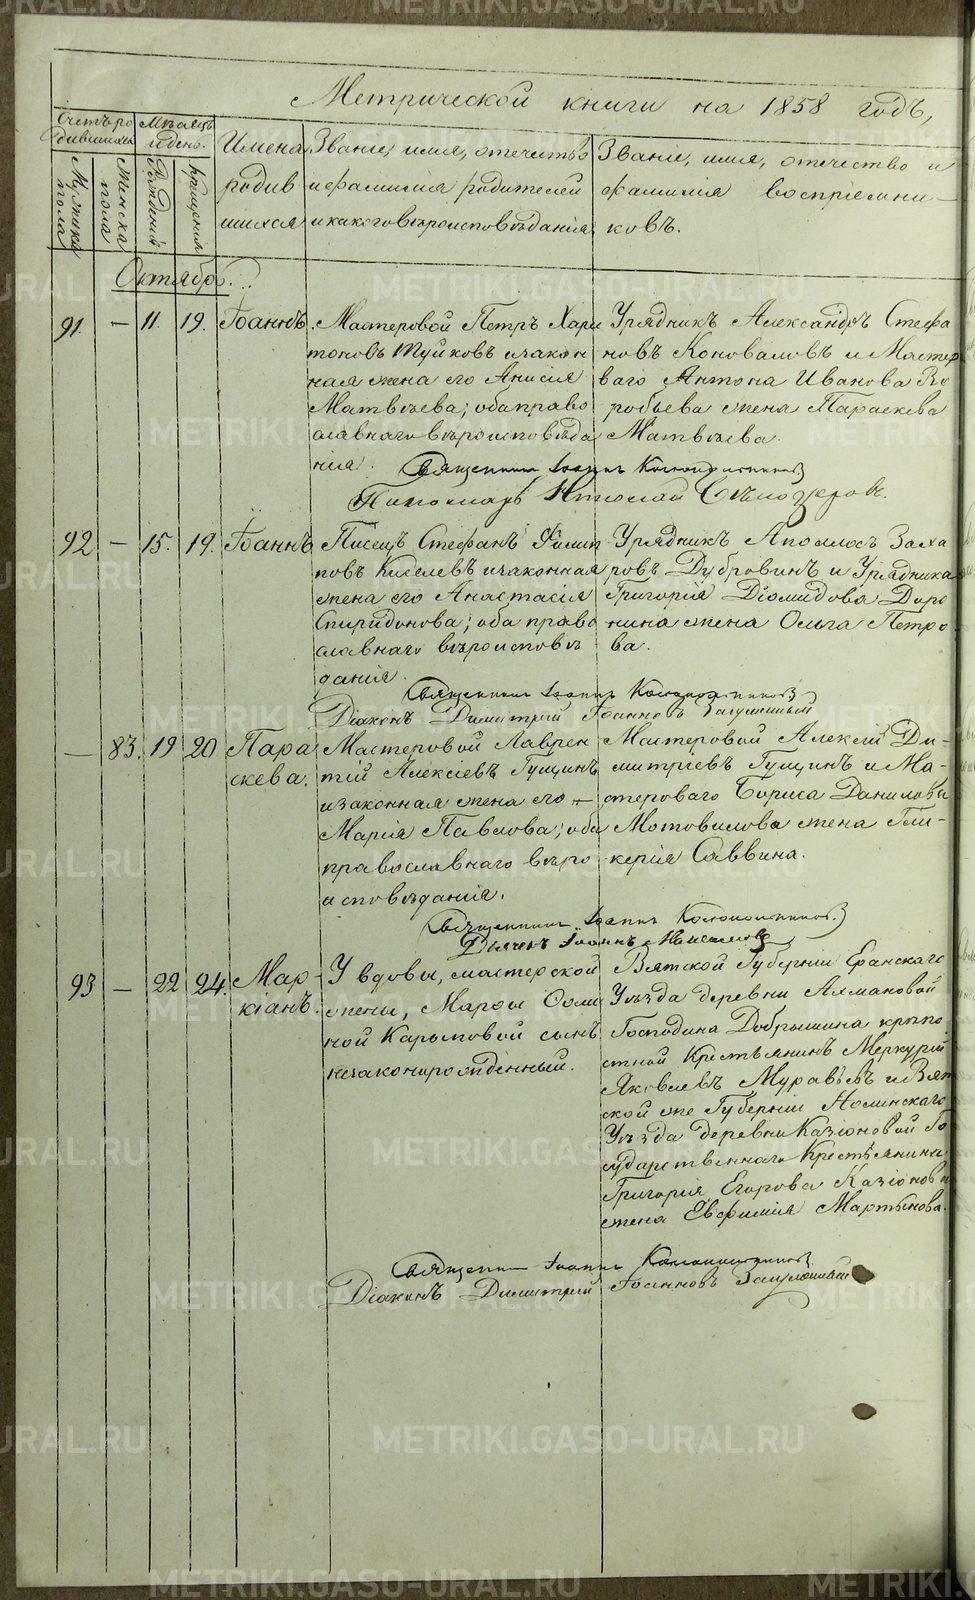 Метрической книги на 1858 годъ,
Счетъ ро
дившихся
Мѣсяцъ
и день.
Мужска
пола
Женска
пола
Рожденія
Крещенія
Имена
родив
шихся
Званіе, имя, отечество
и фамилія родителей
и какого вѣроисповѣданія
Званіе, имя, отечество и
фамилія воспріемни-
ковъ.
Октябр.
91. — 11. 19. Іоаннъ.
Мастеровой Петръ Хари
тоновъ Туйковъ и закон
ная жена его Анисія
Матвѣева; оба право
славнаго вѣроисповѣда
нія.
Урядникъ Александръ Стефа
новъ Коноваловъ и Мастер
ваго Антона Иванова Во
робьева жена Параскева
Матвѣева.
Священникъ Іоаннъ
Пономарь Николай Бѣлозеровъ.
92 — 15. 19. Іоаннъ
Писецъ Стефанъ Филип
повъ Киселевъ и законная
жена его Анастасія
Спиридонова; оба право
славнаго вѣроисповѣ
данія.
Урядникъ Аполлосъ Заха
ровъ Дубровинъ и Урядника
Григорія Діомидова Доро
нина жена Ольга Петро
ва.
Священникъ Іоаннъ
Діаконъ Димитрій Іоанновъ
— 83. 19 20 Пара
скева.
Мастеровой Лаврен
тій Алексіевъ Гущинъ
и законная жена его —
Марія Павлова; оба
православнаго вѣро
исповѣданія.
Мастеровой Алексій Ди-
митріевъ Гущинъ и Ма-
стероваго Бориса Данилова
Мотовилова жена Гли-
керія Саввина.
Священникъ Іоаннъ
Дьячекъ Іоаннъ
93 — 22 24. Мар-
кіанъ.
У вдовы, мастерской
жены, Марѳы Ѳоми
ной Карповой сынъ
незаконорожденный.
Вятской Губерніи Яранскаго
Уѣзда деревни Алмановой
Господина Добрышина крѣпо
стной Крестьянинъ Меркурій
Яковлевъ Муравьевъ и Вят
ской же Губерніи Нолинскаго
Уѣзда деревни Казіоновой Го
сударственнаго Крестьянина
Григорія Егорова Казіонова
жена Евфимія Мартынова.
Священникъ Іоаннъ
Діаконъ Димитрій Іоанновъ
METRIKI.GASO-URAL.RU